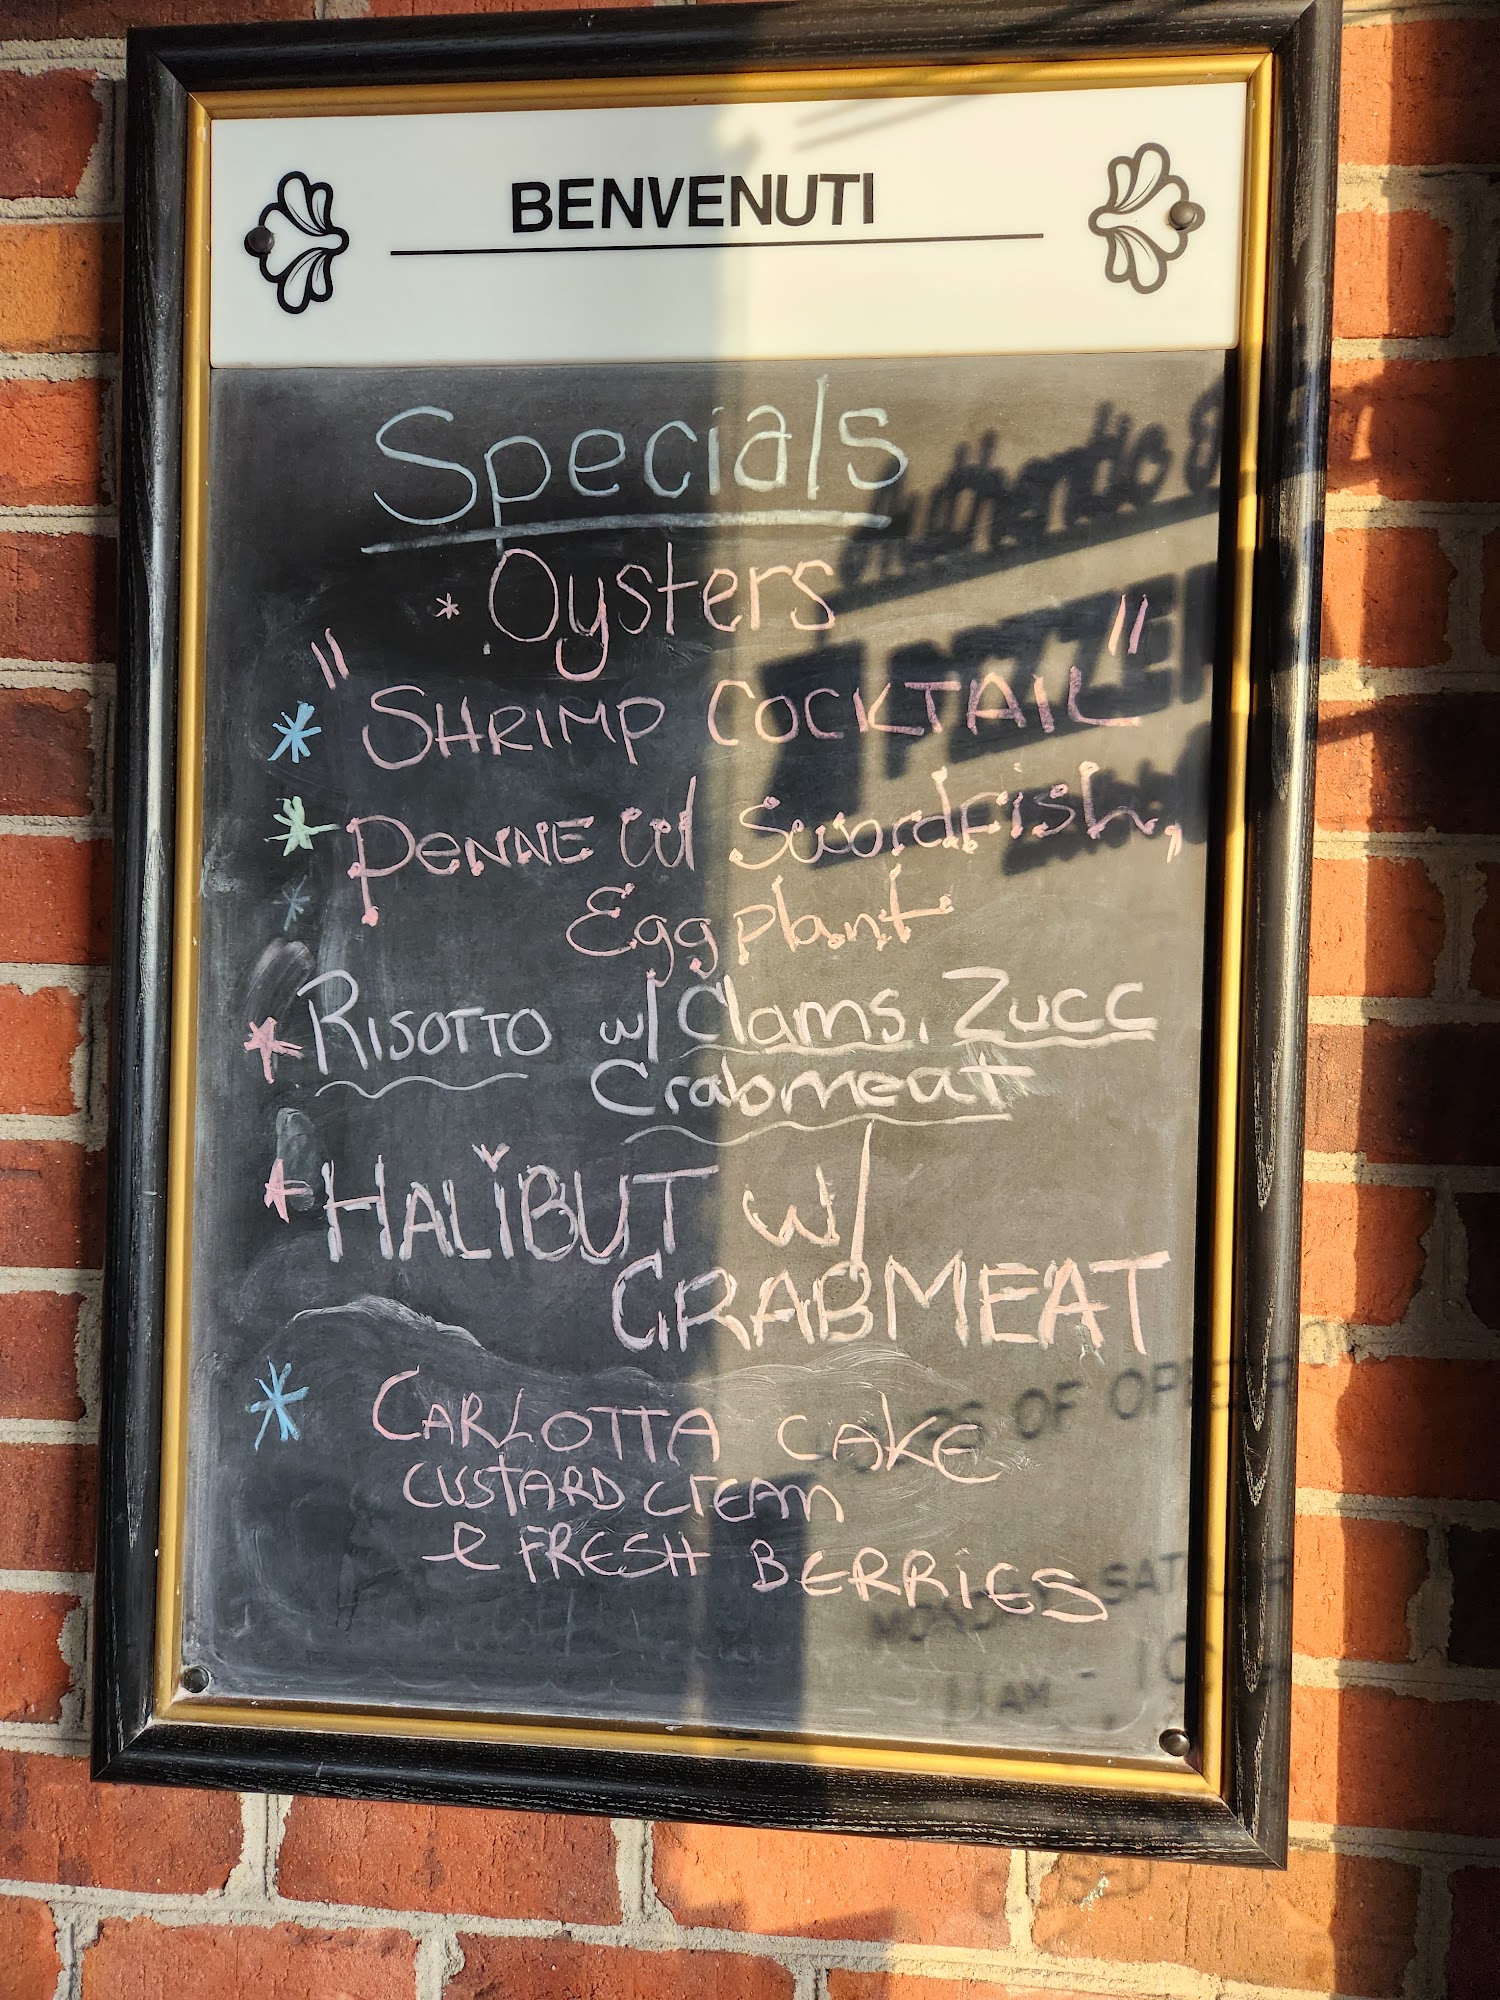 BENVENUTI
Specials
* Oysters
" SHRIMP COCKTAIL "
* PENNE w/ Swordfish,
Eggplant
* RISOTTO w/ Clams, Zucc
Crabmeat
* HALIBUT w/
CRABMEAT
* CARLOTTA CAKE
CUSTARD CREAM
e FRESH BERRIES
Authentic
PIZZER
OF OPER
11AM - 10
CLOSED